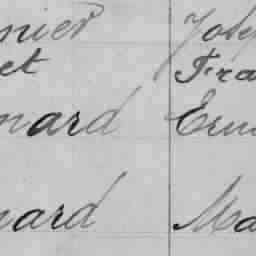 nier Jose
et Fra
nard Ern
nard Ma